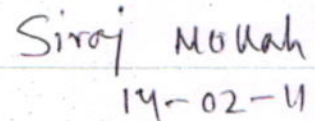 Siraj Mollah
14-02-11